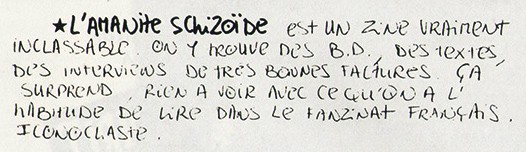 ★L'AMANITE SCHIZOÏDE EST UN ZINE VRAIMENT
INCLASSABLE. ON Y TROUVE DES B.D., DES TEXTES,
DES INTERVIEWS DE TRES BONNES FACTURES. ÇA
SURPREND, RIEN A VOIR AVEC CE QU'ON A L'
HABITUDE DE LIRE DANS LE FANZINAT FRANÇAIS.
ICONOCLASTE.